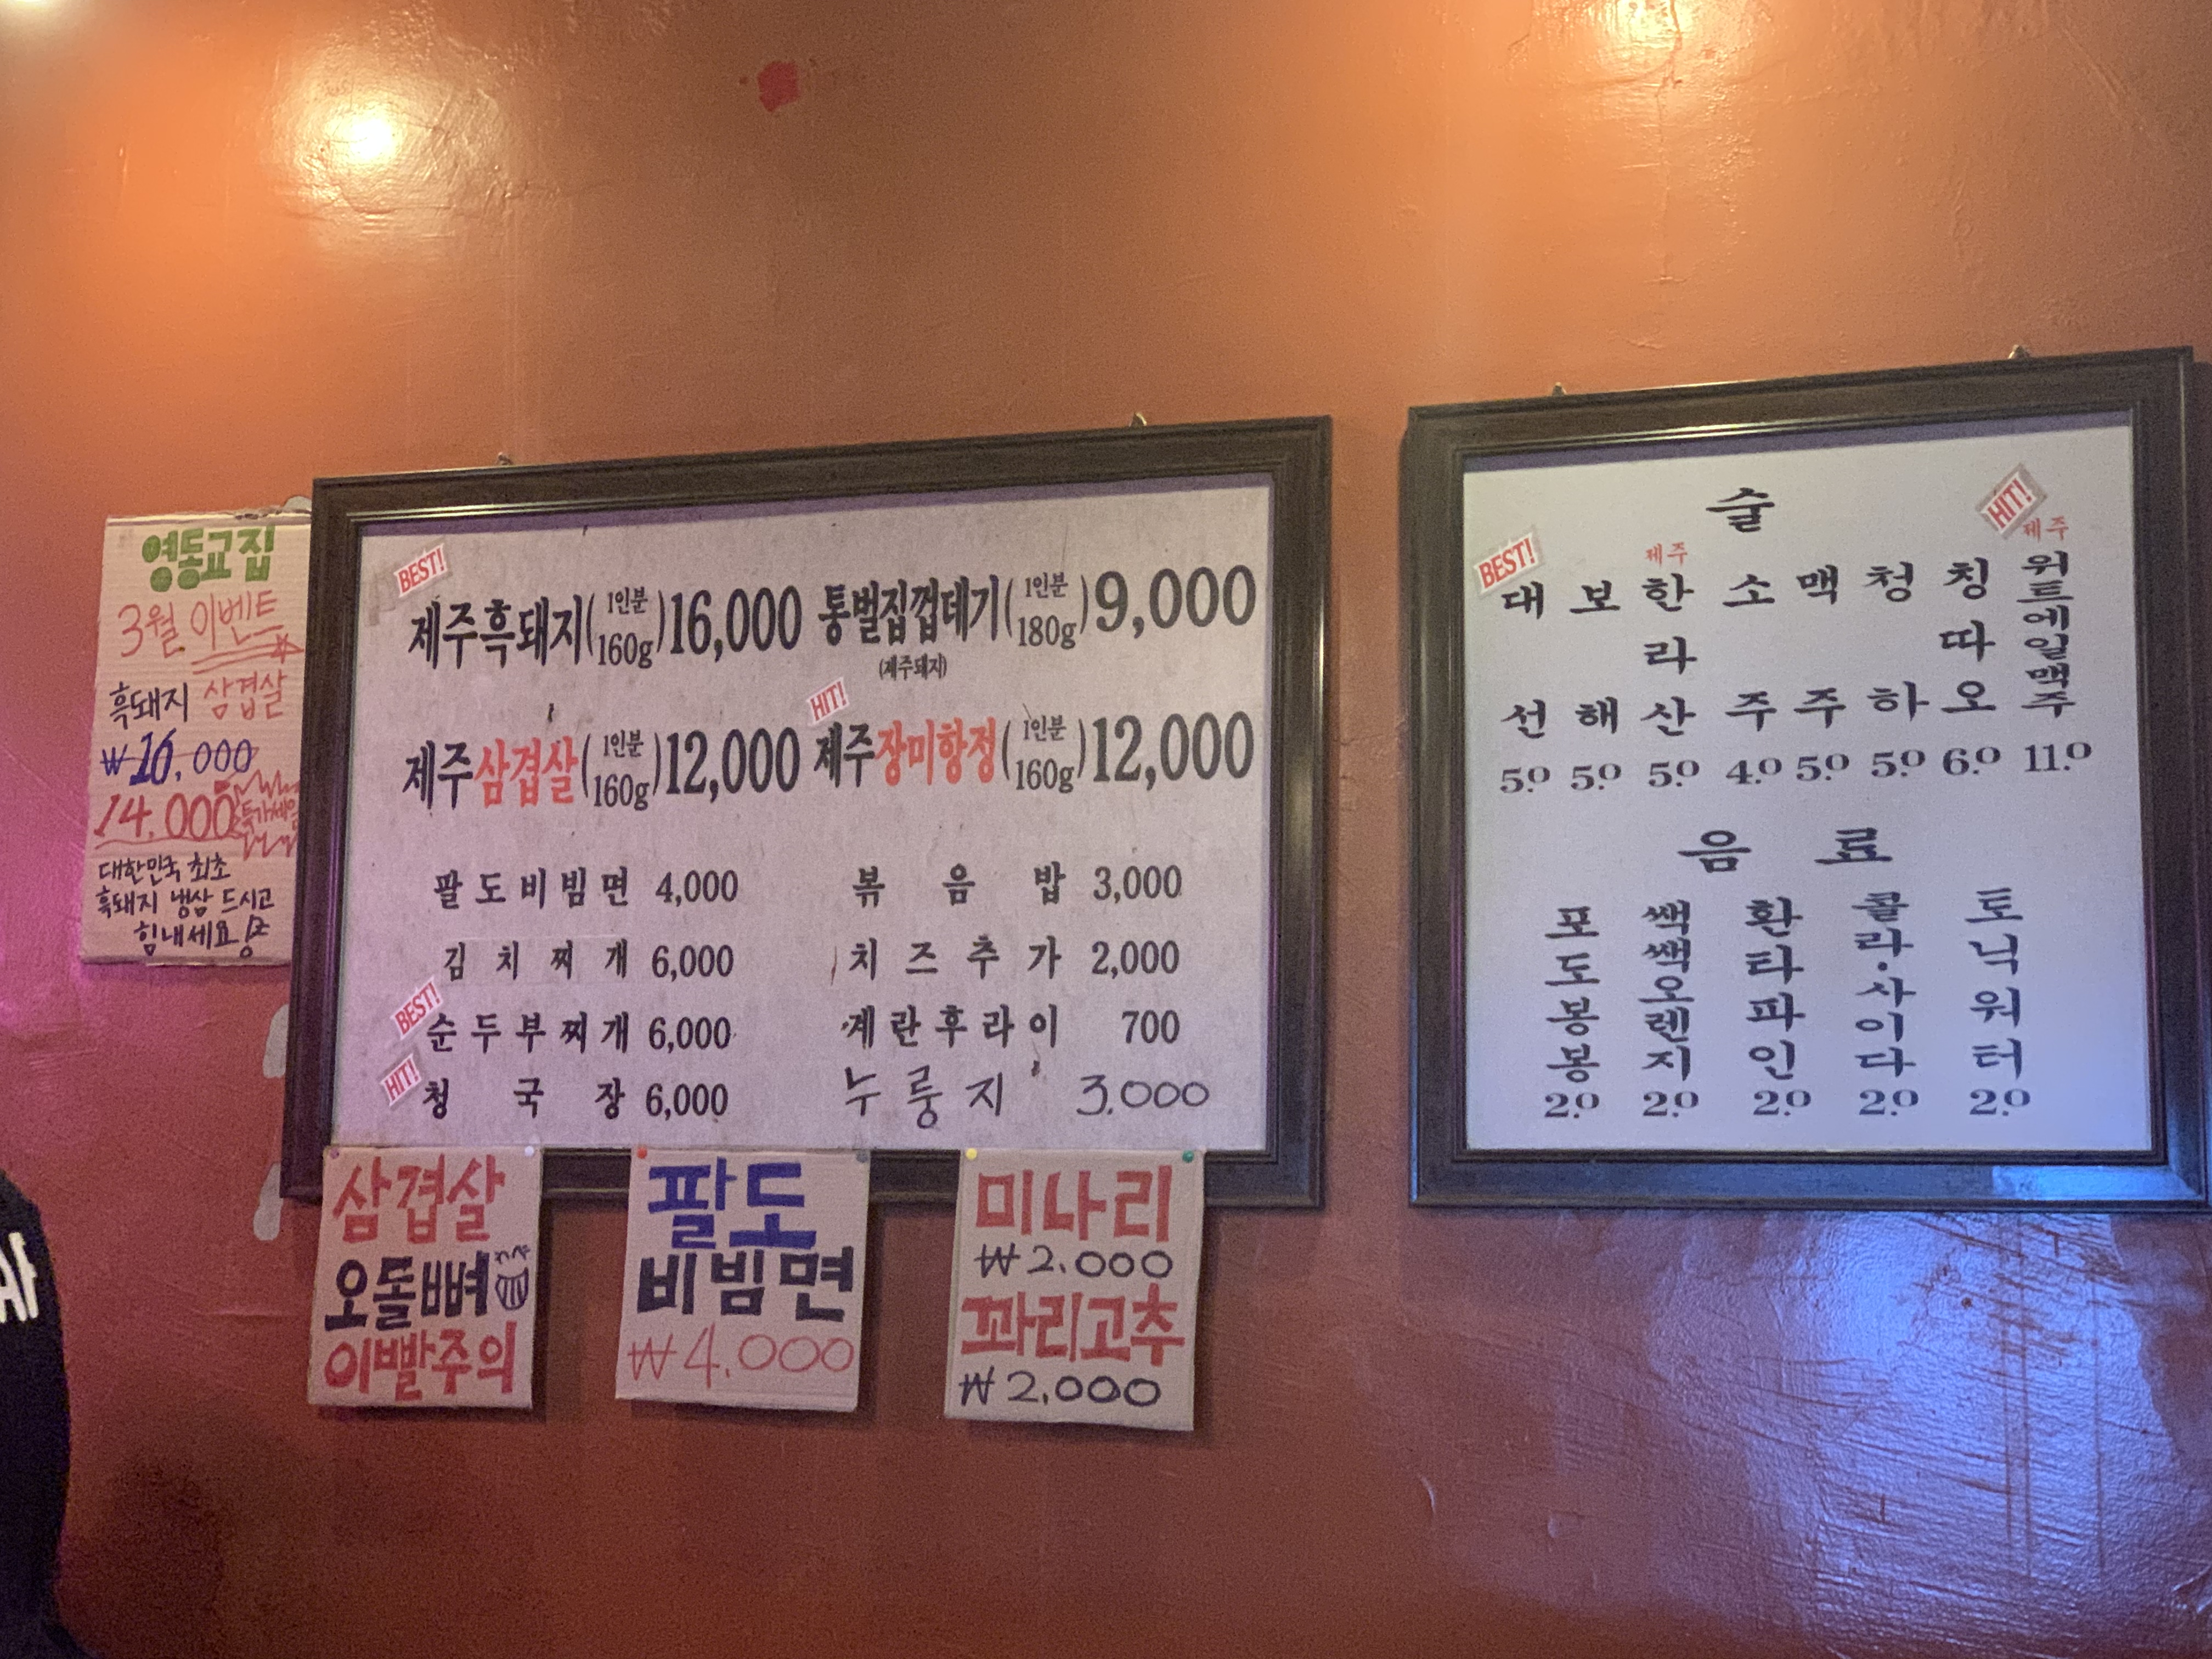 영동교집
3월 이벤트
흑돼지 삼겹살
₩16,000
14.000 특가세일
대한민국 최초
흑돼지 냉삼 드시고
힘내세요!
BEST!
제주흑돼지(1인분 160g)16,000
통벌집껍데기(1인분 180g)9,000
(제주돼지)
제주삼겹살(1인분 160g)12,000
HIT!
제주장미항정(1인분 160g)12,000
팔도비빔면 4,000
볶음밥 3,000
김치찌개 6,000
치즈추가 2,000
BEST!
순두부찌개 6,000
계란후라이 700
HIT!
청국장 6,000
누룽지 3.000
삼겹살
오돌뼈
이빨주의
팔도
비빔면
₩4.000
미나리
₩2.000
꽈리고추
₩2.000
술
BEST!
대선 5.0
보해 5.0
제주 한라산 5.0
소주 4.0
맥주 5.0
청하 5.0
칭따오 6.0
HIT!
제주 위트에일맥주 11.0
음료
포도봉봉 2.0
쌕쌕오렌지 2.0
환타파인 2.0
콜라·사이다 2.0
토닉워터 2.0